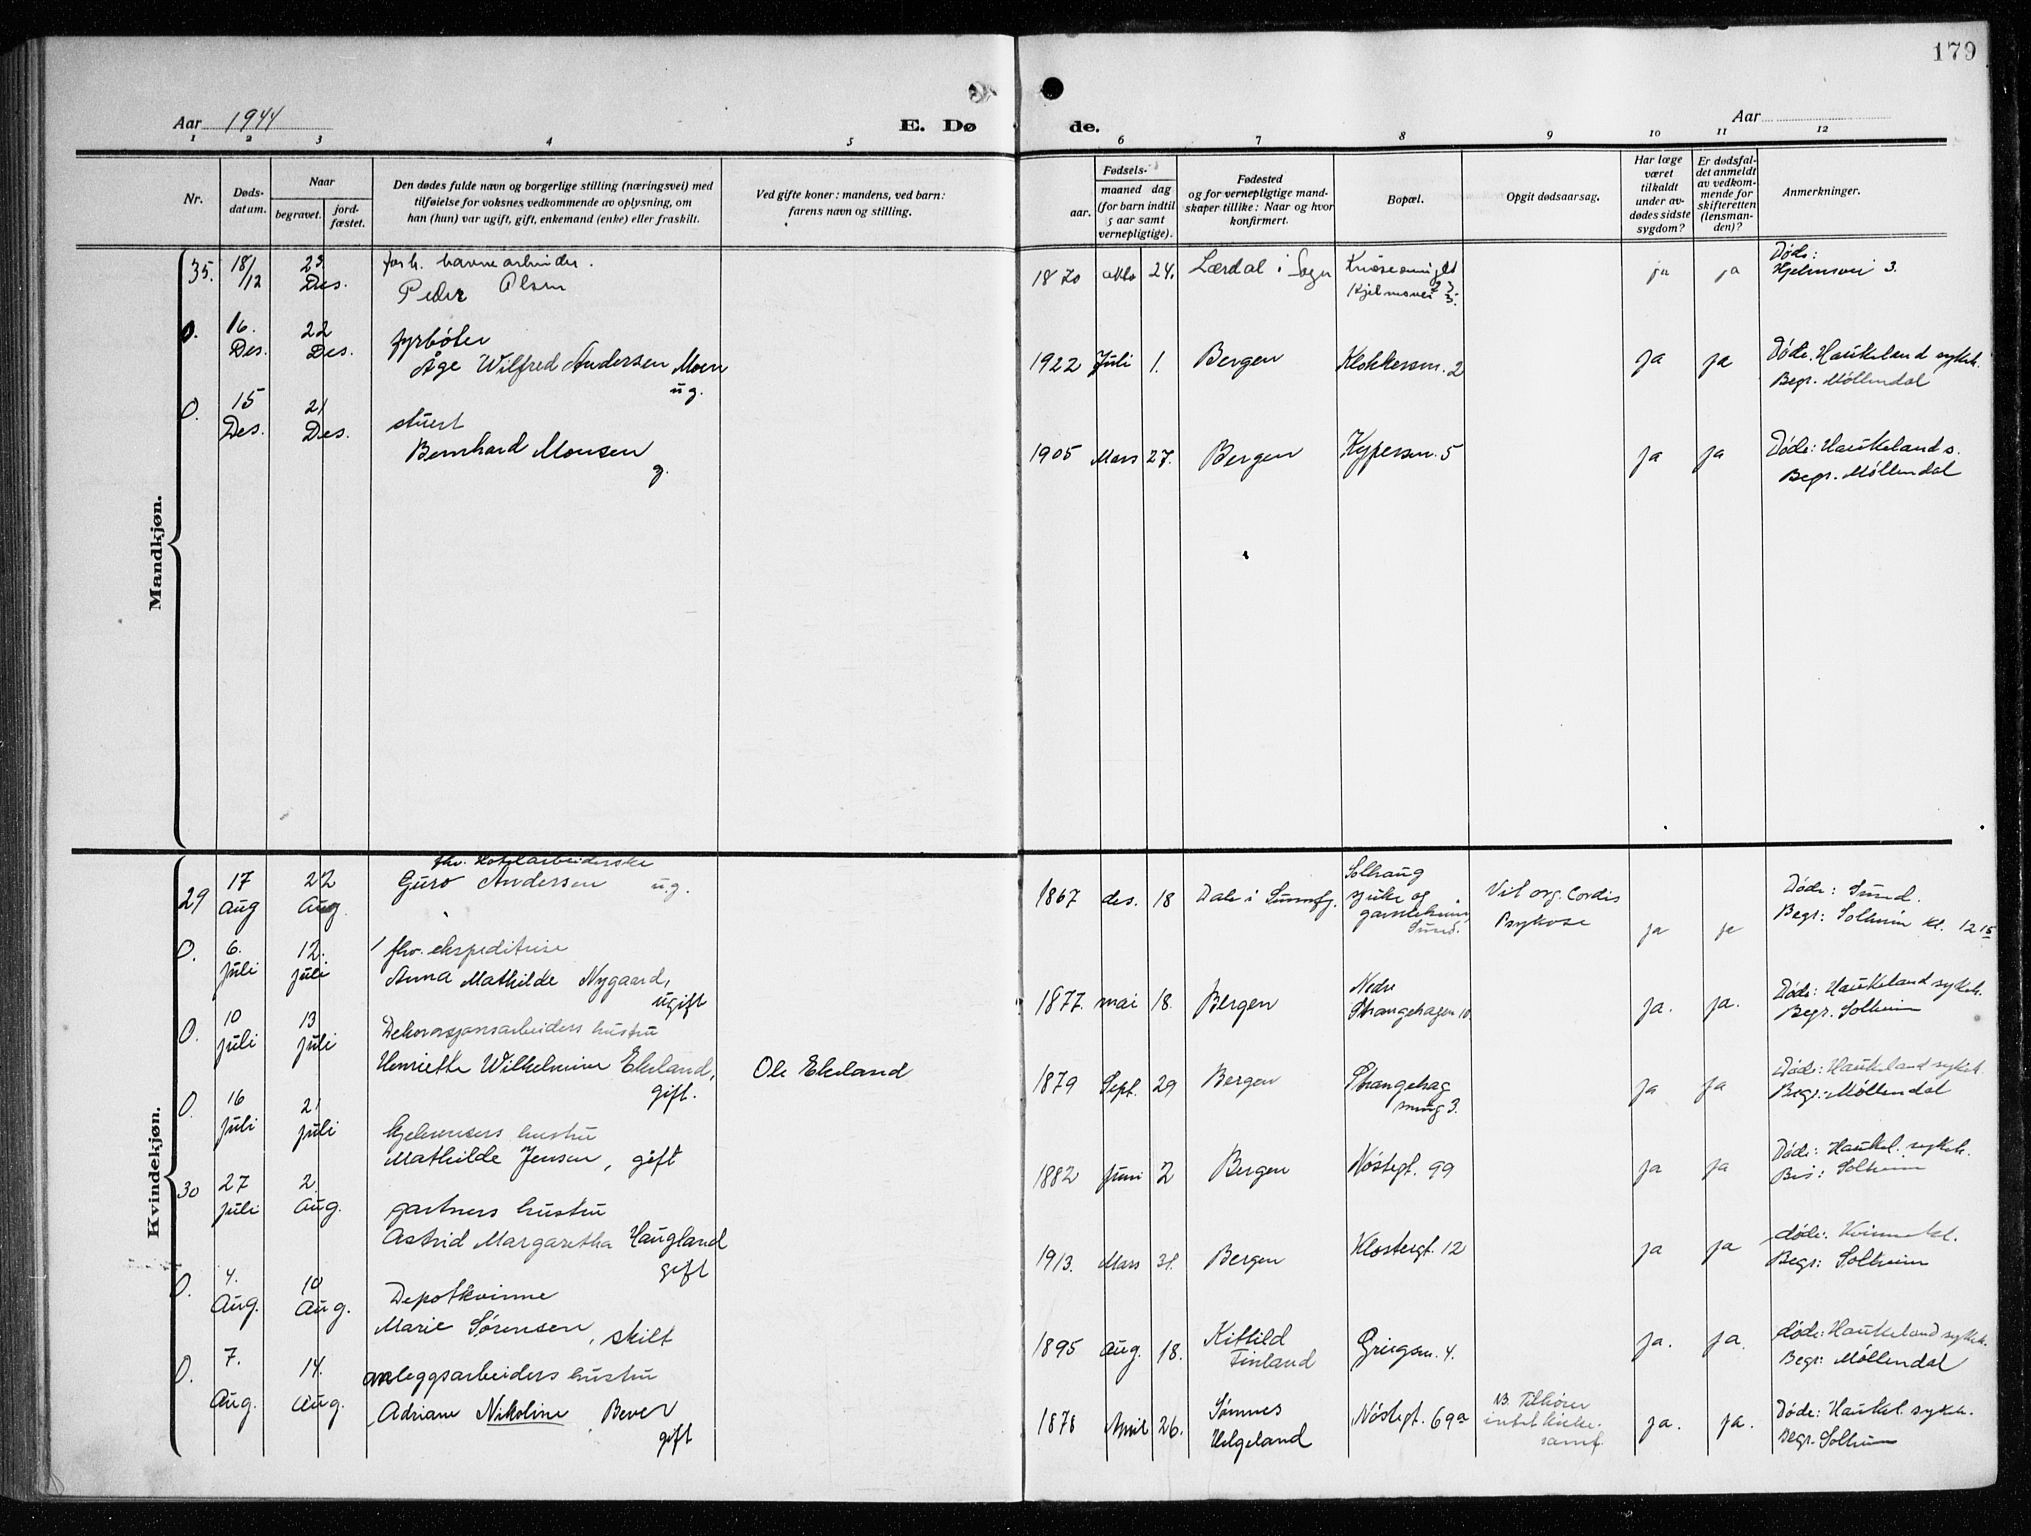 179
Aar 1944
E. Dø
de.
Aar
1 2 3 4 5 6 7 8 9 10 11 12
Nr.
Døds-
datum.
Naar
begravet.
jord-
fæstet.
Den dødes fulde navn og borgerlige stilling (næringsvei) med
tilføielse for voksnes vedkommende av oplysning, om
han (hun) var ugift, gift, enkemand (enke) eller fraskilt.
Ved gifte koner: mandens, ved barn:
farens navn og stilling.
Fødsels-
aar.
maaned dag
(for barn indtil
5 aar samt
vernepligtige).
Fødested
og for vernepligtige mand-
skaper tillike: Naar og hvor
konfirmert.
Bopæl.
Opgit dødsaarsag.
Har læge
været
tilkaldt
under av-
dødes sidste
sygdom?
Er dødsfal-
det anmeldt
av vedkom-
mende for
skifteretten
(lensman-
den)?
Anmerkninger.
Mandkjøn.
35. 18/12 23 Des. forh. havnearbeider.
Peder Olsen
1870 24. Lærdal i Sogn
ja ja Døde:
Hjelmsvei 3.
0. 16. Des. 22 Des. fyrbøter
Åge Wilfred Andersen Moen
ug.
1922 Juli 1. Bergen Klokkersm. 2 ja ja Døde: Haukeland sykeh.
Begr. Møllendal
0. 15 Des. 21 Des. stuert
Bernhard Monsen
g.
1905 Mars 27. Bergen Kypersm. 5 ja ja Døde: Haukeland s.
Begr. Møllendal
Kvindekjøn.
29 17 Aug 22 Aug. fhv. Hotelarbeiderske
Guro Andersen ug.
1867 des. 18 Dale i Sunnfj. Solhaug
syke og
Sund.
Vit. org. Cordis
Psykose
ja ja Døde: Sund.
Begr: Solheim kl. 12 15
0. 6. juli 12. juli fhv. ekspeditrise
Anna Mathilde Nygaard,
ugift
1877. mai 18. Bergen Nedre
Strangehagen 10
ja. ja. Døde: Haukeland sykeh.
Begr. Solheim
0. 10 juli 13 juli Dekorasjonsarbeiders hustru
Henriette Wilhelmine Ekeland,
gift.
Ole Ekeland
1879 Sept. 29 Bergen Strangehag
smug 3.
ja ja Døde: Haukeland sykeh.
Begr: Møllendal
0. 16 juli 21 juli hustru
Mathilde Jensen, gift
1882 Juni 2 Bergen Nøstegt. 99 ja ja Døde: Haukel. sykeh.
Solheim
30 27 juli 2. Aug. gartners hustru
Astrid Margaretha Haugland
gift
1913. Mars 31. Bergen Klostergt. 12 ja ja døde: Kvinnekl.
Begr: Solheim
0. 4. Aug. 10 Aug. Depotkvinne
Marie Sørensen, skilt
1895 Aug. 18. Kittild
Finland
Griegsm. 4. ja. ja. døde: Haukeland sykeh.
Begr: Møllendal
0. 7. Aug. 14. Aug. anleggsarbeiders hustru
Adriane Nikoline Bever
gift
1878 April 26. Sømnes
Helgeland
Nøstegt. 69a NB. Tilhører
intet kirke-
samf.
ja. ja. Døde: Haukel. sykeh.
Begr. Solheim